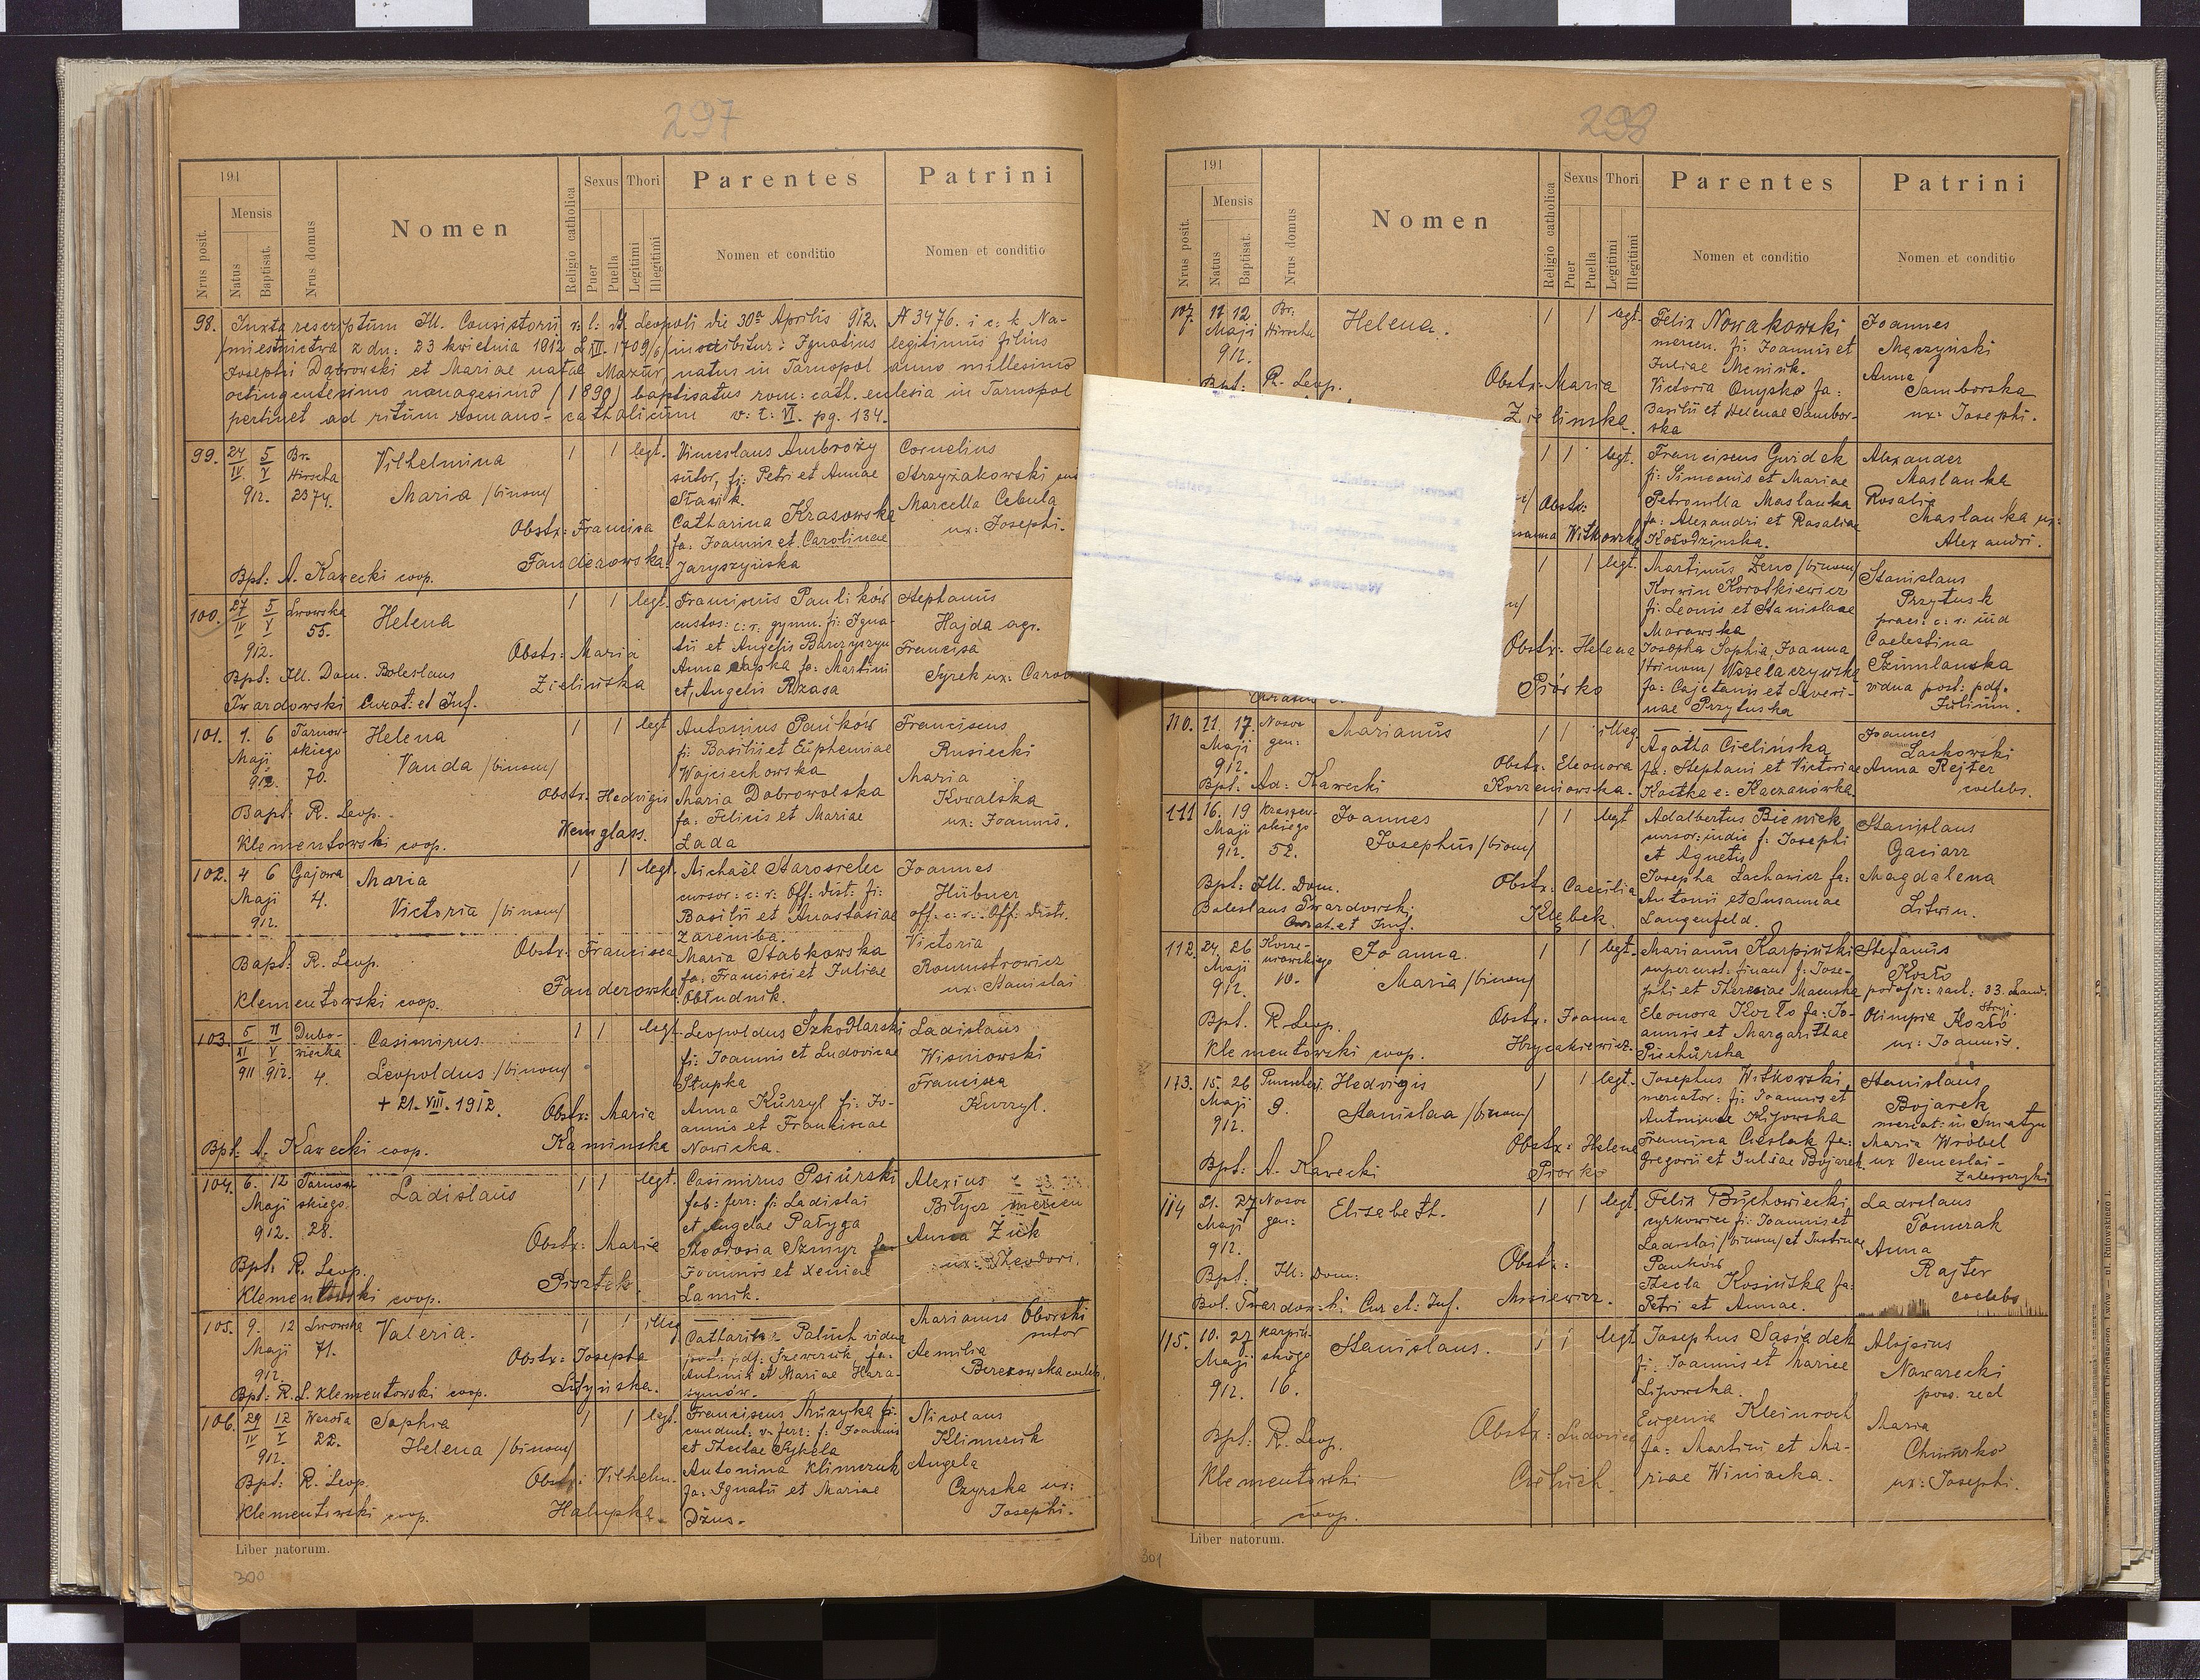 297
191
Nrus posit.
Mensis
Natus
Baptisat.
Nrus domus
Nomen
Religio catholica
Sexus
Puer
Puella
Thori
Legitimi
Illegitimi
Parentes
Nomen et conditio
Patrini
Nomen et conditio
98. Juxta rescriptum Ill. Consistorii r: l: Leopoli die 30a Aprilis 912. N 3476. i c. k. Na-
miestnictwa z dn: 23 kwietnia 1912 L XII. 1709/6/ inscribitur: Ignatius legitimus filius
Josephi Dąbrowski et Mariae natae Mazur, natus in Tarnopol anno millesimo
octingentesimo nonagesimo (1890) baptisatus rom: cath. ecclesia in Tarnopol
pertinet ad ritum romano-catholicum v: t: VI. pg. 134.
99. 24/IV 5/V 912. Br. Hirscha 2374.
Vilhelmina
Maria /binom/
1 1 legt.
Obstr: Francisca
Fanderowska
Bpt: A. Kawecki coop.
Venceslaus Ambroży
sutor, fi: Petri et Annae
Stasik.
Catharina Krasowska
fa: Joannis et Carolinae
Jaryszyńska
Cornelius
Strzyżakowski
Marcella Cebula
ux: Josephi.
100. 27/IV 5/V 912. Lwowska 55.
Helena
1 1 legt.
Obstr: Maria
Zielińska
Bpt: Ill. Dom. Boleslaus
Twardowski Curat: et Inf.
Franciscus Paulików
custos: c: r: gymn. fi: Igna-
tii et Angelis Barczyszyn
Anna fa: Martini
et Angelis Rzasa
Stephanus
Hajda agr.
Francisca
Syrek ux:
101. 1. 6 Maji 912. Tarnow-
skiego 70.
Helena
Vanda /binom/
1 1 legt
Obstr: Hedvigis
Weinglass.
Bapt: R. Leop.
Klementowski coop.
Antonius Pańków
fi: Basilii et Euphemiae
Wojciechowska
Maria Dobrowolska
fa: Felicis et Mariae
Lada
Franciscus
Rusiecki
Maria
Kowalska
ux: Joannis.
102. 4 6 Maji 912. Gajowa 4.
Maria
Victoria /binom/
1 1 legt.
Obstr: Francisca
Fanderowska
Bapt: R. Leop.
Klementowski coop.
Michaël Starosielec
cursor: c: r: Off: dist: fi:
Basilii et Anastasiae
Zaremba.
Maria Stabkowska
fa: Francisci et Juliae
Obłudnik.
Joannes
Hübner
off: c: r: Off: distr.
Victoria
ux: Stanislai
103. 5/XI 911 11/V 912. Dubo-
wiecka 4.
Casimirus
Leopoldus /binom/
+ 21. VIII. 1912.
1 1 legt.
Obstr: Maria
Kamińska
Bpt: A. Kawecki coop.
Leopoldus Szkodlarski
fi: Joannis et Ludovicae
Stupka
Anna Kurzyl fi: Jo-
annis et Franciscae
Nowicka.
Ladislaus
Wisniowski
Francisca
Kurzyl.
104. 6. 12 Maji 912. Tarnow-
skiego 28.
Ladislaus
1 1 legt.
Obstr: Maria
Piontek.
Bpt: R. Leop.
Klementowski coop.
Casimirus Psiurski
fab: ferr: fi: Ladislai
et Angelae Pałyga
Theodosia Szmyr fa
Joannis et Xeniae
Lamik.
Alexius
Bitycz mercen
Anna Zuk
ux: Theodori.
105. 9. 12 Maji 912. Lwowska 71.
Valeria.
1 1 illeg
Obstr: Josepha
Lityńska.
Bpt: R. L. Klementowski coop.
Catharina Paluch vidua
post: pdf: Szewczuk, fa:
Antonii et Mariae Hara-
symów.
Marianus Oborski
sutor
Aemilia
Berezowska coelebs.
106. 29/IV 12/V 912. Wesoła 22.
Sophia
Helena /binom/
1 1 legt.
Obstr: Vilhelm.
Halupka.
Bpt: R. Leop.
Klementowski coop.
Franciscus Muzyka fi:
conduct: v. ferr: f: Joannis
et Theclae Sykela
Antonina Klimczuk
fa: Ignatii et Mariae
Dżus.
Nicolaus
Klimczuk
Angela
Czyrska ux:
Josephi.
Liber natorum.
300
298
191
Nrus posit.
Mensis
Natus
Baptisat.
Nrus domus
Nomen
Religio catholica
Sexus
Puer
Puella
Thori
Legitimi
Illegitimi
Parentes
Nomen et conditio
Patrini
Nomen et conditio
107. 12 Maji 912. Br. Hirscha
Helena.
1 1 legt.
Bpt: R. Leop.
Obstr: Maria
Zielinska.
Felix Nowakowski
mercen. fi: Joannis et
Juliae Melnik.
Victoria Onysko fa:
Basilii et Helenae Sambor-
ska
Joannes
Męczyński
Anna
Samborska
ux: Josephi.
1 1 legt.
Obstr:
Witkowska
Franciscus Gwidek
fi: Simeonis et Mariae
Petronilla Maslanka
fa: Alexandri et Rosaliae
Kołodzinska.
Alexander
Maslanka
Rosalia
Maslanka ux:
Alexandri.
1 1 legt.
Obstr: Helena
Piórko
Martinus Zeno /binom/
Korwin Korotkiewicz
fi: Leonis et Stanislaae
Morawska
Josepha Sophia, Joanna
/trinom/ Wszelaczywska
fa: Cajetani et Severi-
nae Przytuska
Stanislaus
Przytusk
Caelestina
Szimlanska
vidua post: pdf.
Julium.
110. 11. 17. Maji 912. Nosow
gon:
Marianus
1 1 illeg
Obstr: Eleonora
Korzeniowska.
Bpt: Ad: Kawecki
Agatha Cielińska
fa: Stephani et Victoriae
Kostka e: Kaczanówka.
Joannes
Laskowski
Anna Rejter
coelebs.
111 16. 19 Maji 912. Kraszew-
skiego 52.
Joannes
Josephus /binom/
1 1 legt
Obstr: Caecilia
Klębek.
Bpt: Ill. Dom.
Boleslaus Twardowski
Curat. et Inf.
Adalbertus Bieniek
cursor: indic f: Josephi
et Agnetis
Josepha Lachowicz fa:
Antonii et Susannae
Langenfeld.
Stanislaus
Gaciarz
Magdalena
Litwin.
112. 24. 26 Maji 912. Korze-
niowskiego 10.
Joanna.
Maria /binom/
1 1 legt.
Obstr: Joanna
Hrycakiewicz.
Bpt. R. Leop.
Klementowski coop.
Marianus Karpiński
supercust: finan f: Jose-
phi et Theresiae
Eleonora Kozło fa: Jo-
annis et Margarithae
Piechurska
Stefanus
Kozło
podofic: rach: 33. Land.
Stryj.
Olimpia Kozło
ux: Joannis.
113. 15. 26 Maji 912. 9.
Hedvigis
Stanislaa /binom/
1 1 legt.
Obstr: Helena
Piorko
Bpt: A. Kawecki
Josephus Witkowski
mercator: fi: Joannis et
Antoninae Kijowska
Francisca Cieslak fa:
Gregorii et Juliae Bojarek
Stanislaus
Bojarek
mercat: in Śniatyn
Maria Wróbel
ux Venceslai -
Zaleszczyki
114 21. 27 Maji 912. Nosow
gon:
Elisabeth.
1 1 legt
Obstr:
Misiewicz.
Bpt. Ill: Dom:
Bol. Twardowski, Cur et: Inf.
Felix Brychowiecki
fi: Joannis et
Ladislai /binom/ et Justinae
Pańków
Thecla Kosińska fa:
Petri et Annae.
Ladislaus
Pomerak
Anna
Rajter
coelebs
115. 10. 27 Maji 912. Karpiń-
skiego 16.
Stanislaus.
1 1 legt
Obstr: Ludovica
Bpt: R. Leop.
Klementowski
coop.
Josephus Sasiadek
fi: Joannis et Mariae
Lipowska.
Eugenia Kleinroch
fa: Martini et Ma-
riae Winiarka.
Alojsius
Nawarecki
poss. real
Maria
Chmurko
ux: Josephi.
Liber natorum.
301